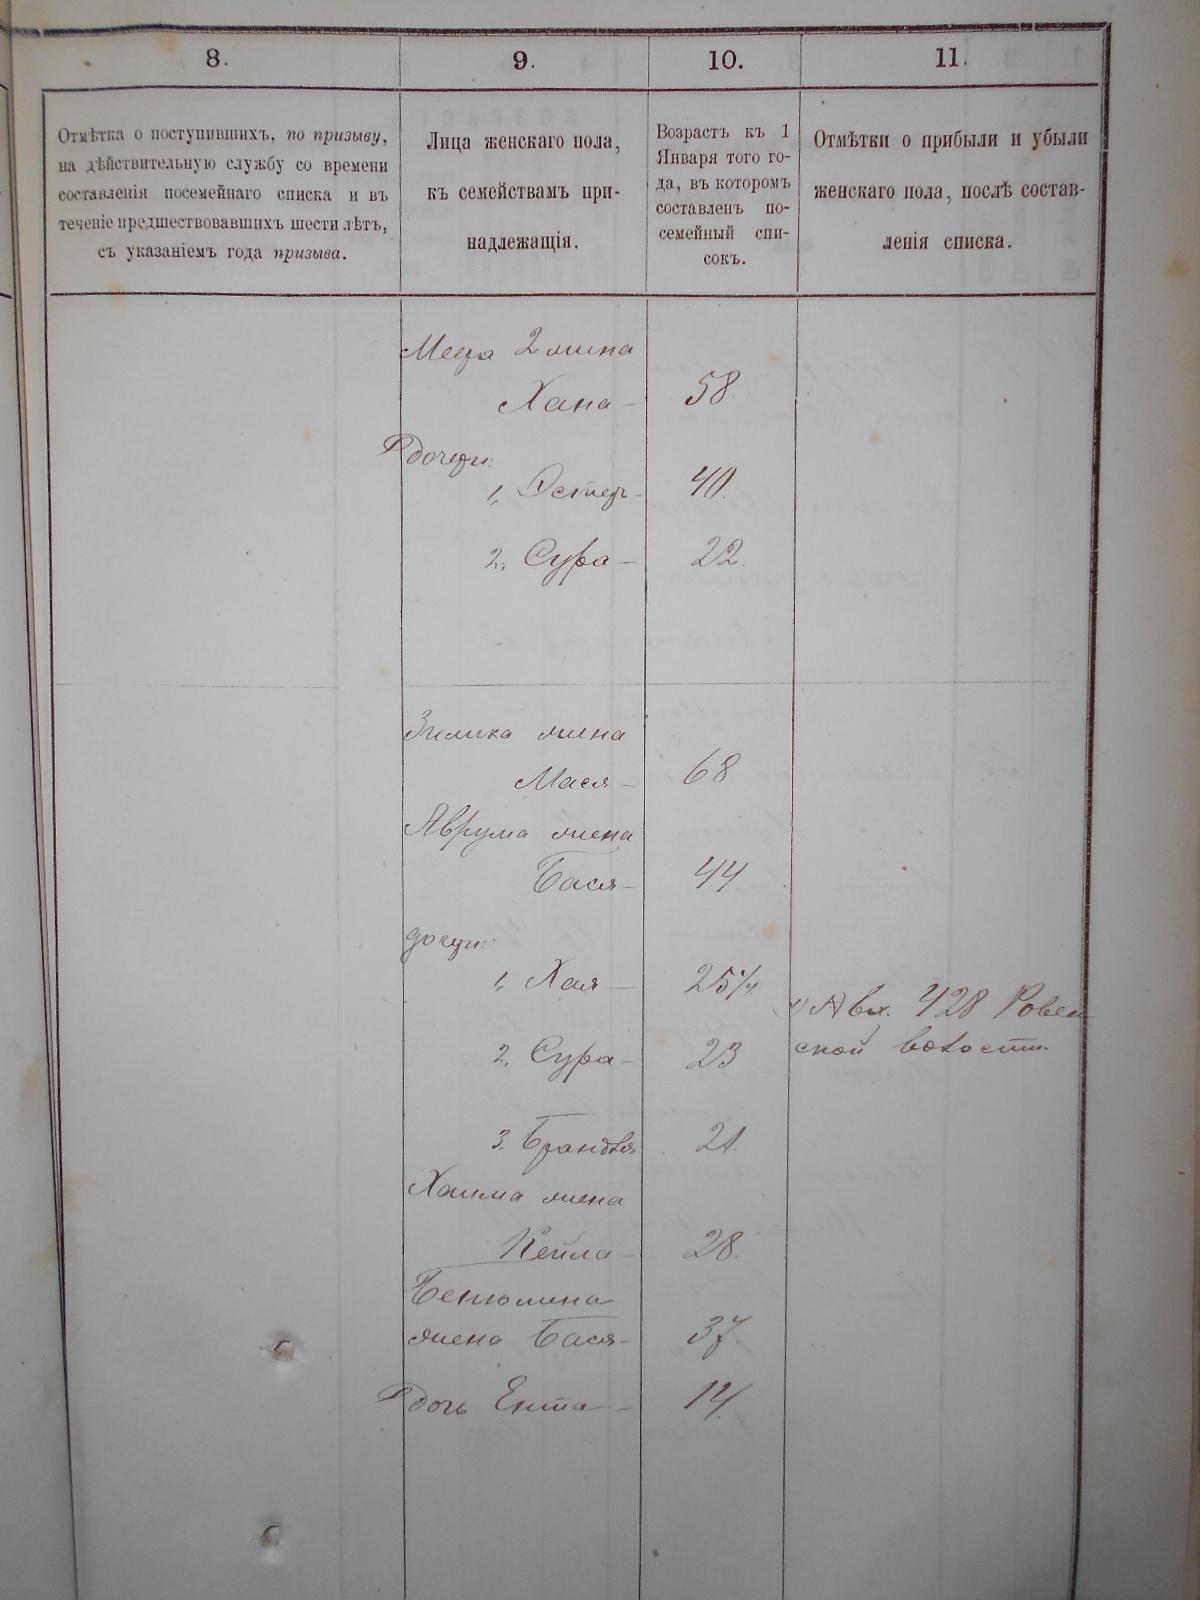 8.
9.
10.
11.
Отмѣтка о поступившихъ, по призыву,
на дѣйствительную службу со времени
составленія посемейнаго списка и въ
теченіе предшествовавшихъ шести лѣтъ,
съ указаніемъ года призыва.
Лица женскаго пола,
къ семействамъ при-
надлежащія.
Возрастъ къ 1
Января того го-
да, въ которомъ
составленъ по-
семейный спи-
сокъ.
Отмѣтки о прибыли и убыли
женскаго пола, послѣ состав-
ленія списка.
2 жина
Хана – 58.
дочери:
1, Эстер – 40.
2, Сура – 22.
Зилика жена
Мася – 68
Аврума жена
Бася – 44
дочери:
1, Хая – 25
428 Ровен-
2, Сура – 23
ской волости.
3. 21.
Хаима жена
Кейла – 28.
Бенюмина
жена Бася – 37.
дочь Ента – 14.